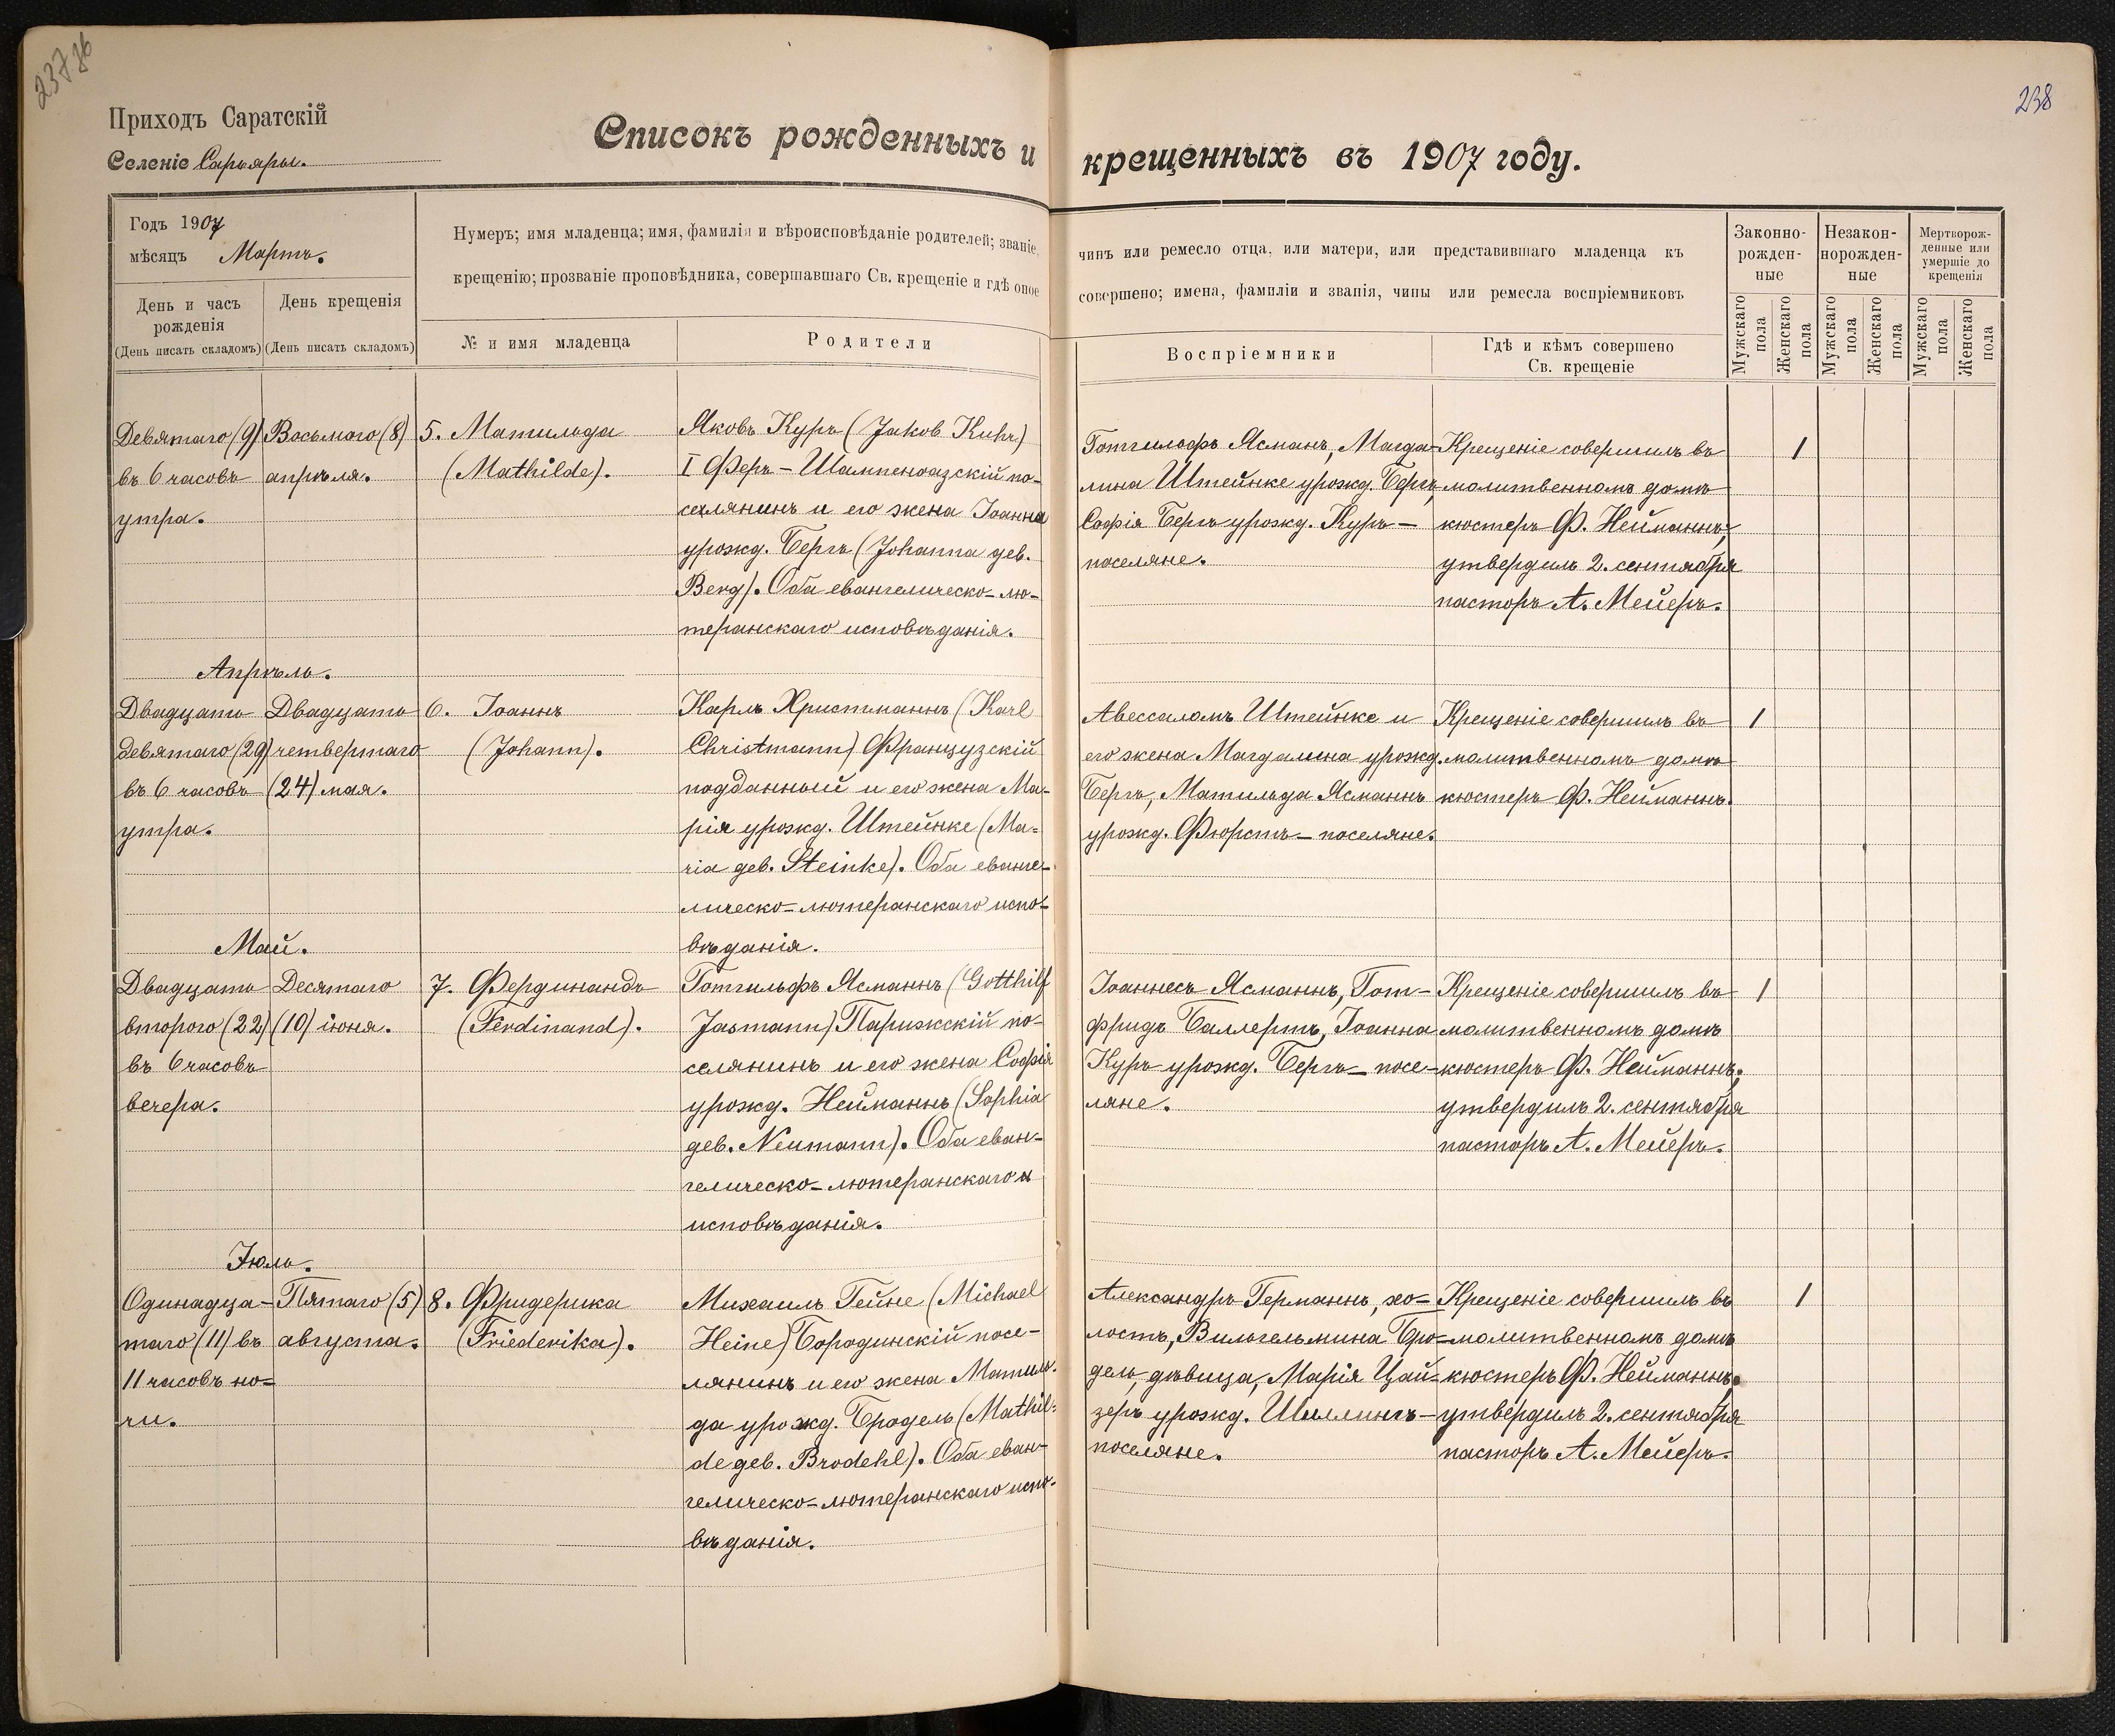 237 об
238
Приходъ Саратскій
Селеніе Сарьяры.
Списокъ рожденныхъ и крещенныхъ въ 1907 году.
Годъ 1907
мѣсяцъ Мартъ.
День и часъ
рожденія
(День писать складомъ)
День крещенія
(День писать складомъ)
Нумеръ; имя младенца; имя, фамилія и вѣроисповѣданіе родителей; званіе,
крещенію; прозваніе проповѣдника, совершавшаго Св. крещеніе и гдѣ оное
№ и имя младенца
Родители
чинъ или ремесло отца, или матери, или представившаго младенца къ
совершено; имена, фамиліи и званія, чины или ремесла воспріемниковъ
Воспріемники
Гдѣ и кѣмъ совершено
Св. крещеніе
Законно-
рожден-
ные
Незакон-
норожден-
ные
Мертворож-
денные или
умершіе до
крещенія
Мужскаго
пола
Женскаго
пола
Мужскаго
пола
Женскаго
пола
Мужскаго
пола
Женскаго
пола
Девятаго (9)
въ 6 часовъ
утра.
Восьмого (8)
апрѣля.
5. Матильда
(Mathilde).
Яковъ Куръ (Jakob Kuhr)
I Феръ-Шампенуазскій по-
селянинъ и его жена Іоанна
урожд. Бергъ (Johanna geb.
Berg). Оба евангелическо-лю-
теранскаго исповѣданія.
Готгильфъ Ясманъ, Магда-
лина Штейнке урожд. Бергъ,
Софія Бергъ урожд. Куръ —
поселяне.
Крещеніе совершилъ въ
молитвенномъ домѣ
кюстеръ Ф. Нейманнъ;
утвердилъ 2. сентября
пасторъ А. Мейеръ.
1
Апрѣль.
Двадцать
девятаго (29)
въ 6 часовъ
утра.
Двадцать
четвертаго
(24) мая.
6. Іоаннъ
(Johann).
Карлъ Христманнъ (Karl
Christmann) Французскій
подданный и его жена Ма-
рія урожд. Штейнке (Ma-
ria geb. Steinke). Оба еванге-
лическо-лютеранскаго испо-
вѣданія.
Авессаломъ Штейнке и
его жена Магдалина урожд.
Бергъ, Матильда Ясманнъ
урожд. Фюрстъ — поселяне.
Крещеніе совершилъ въ
молитвенномъ домѣ
кюстеръ Ф. Нейманнъ.
1
Май.
Двадцать
второго (22)
въ 6 часовъ
вечера.
Десятаго
(10) іюня.
7. Фердинандъ
(Ferdinand).
Готгильфъ Ясманнъ (Gotthilf
Jasmann) Парижскій по-
селянинъ и его жена Софія
урожд. Нейманнъ (Sophia
geb. Neumann). Оба еван-
гелическо-лютеранскаго и
исповѣданія.
Іоаннесъ Ясманнъ, Гот-
фридъ Баллертъ, Іоанна
Куръ урожд. Бергъ — посе-
ляне.
Крещеніе совершилъ въ
молитвенномъ домѣ
кюстеръ Ф. Нейманнъ;
утвердилъ 2. сентября
пасторъ А. Мейеръ.
1
Іюль.
Одинадца-
таго (11) въ
11 часовъ но-
чи.
Пятаго (5)
августа.
8. Фридерика
(Friederika).
Михаилъ Гейне (Michael
Heine) Бородинскій посе-
лянинъ и его жена Матиль-
да урожд. Бродель (Mathil-
de geb. Brodehl). Оба еван-
гелическо-лютеранскаго испо-
вѣданія.
Александръ Германнъ, хо-
лостъ, Вильгельмина Бро-
дель, дѣвица, Марія Цай-
зеръ урожд. Шиллингъ —
поселяне.
Крещеніе совершилъ въ
молитвенномъ домѣ
кюстеръ Ф. Нейманнъ;
утвердилъ 2. сентября
пасторъ А. Мейеръ.
1